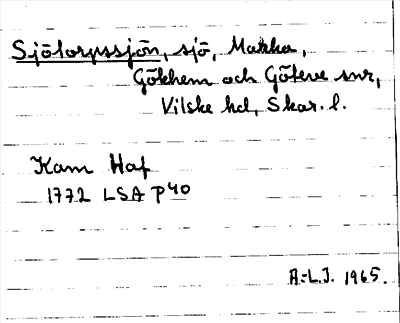 Sjötorpssjön, sjö, Marka,
Gökhem och Göteve snr,
Vilske hd, Skar. l.
Kam Haf
1772 LSA P40
A.-L.J. 1965.